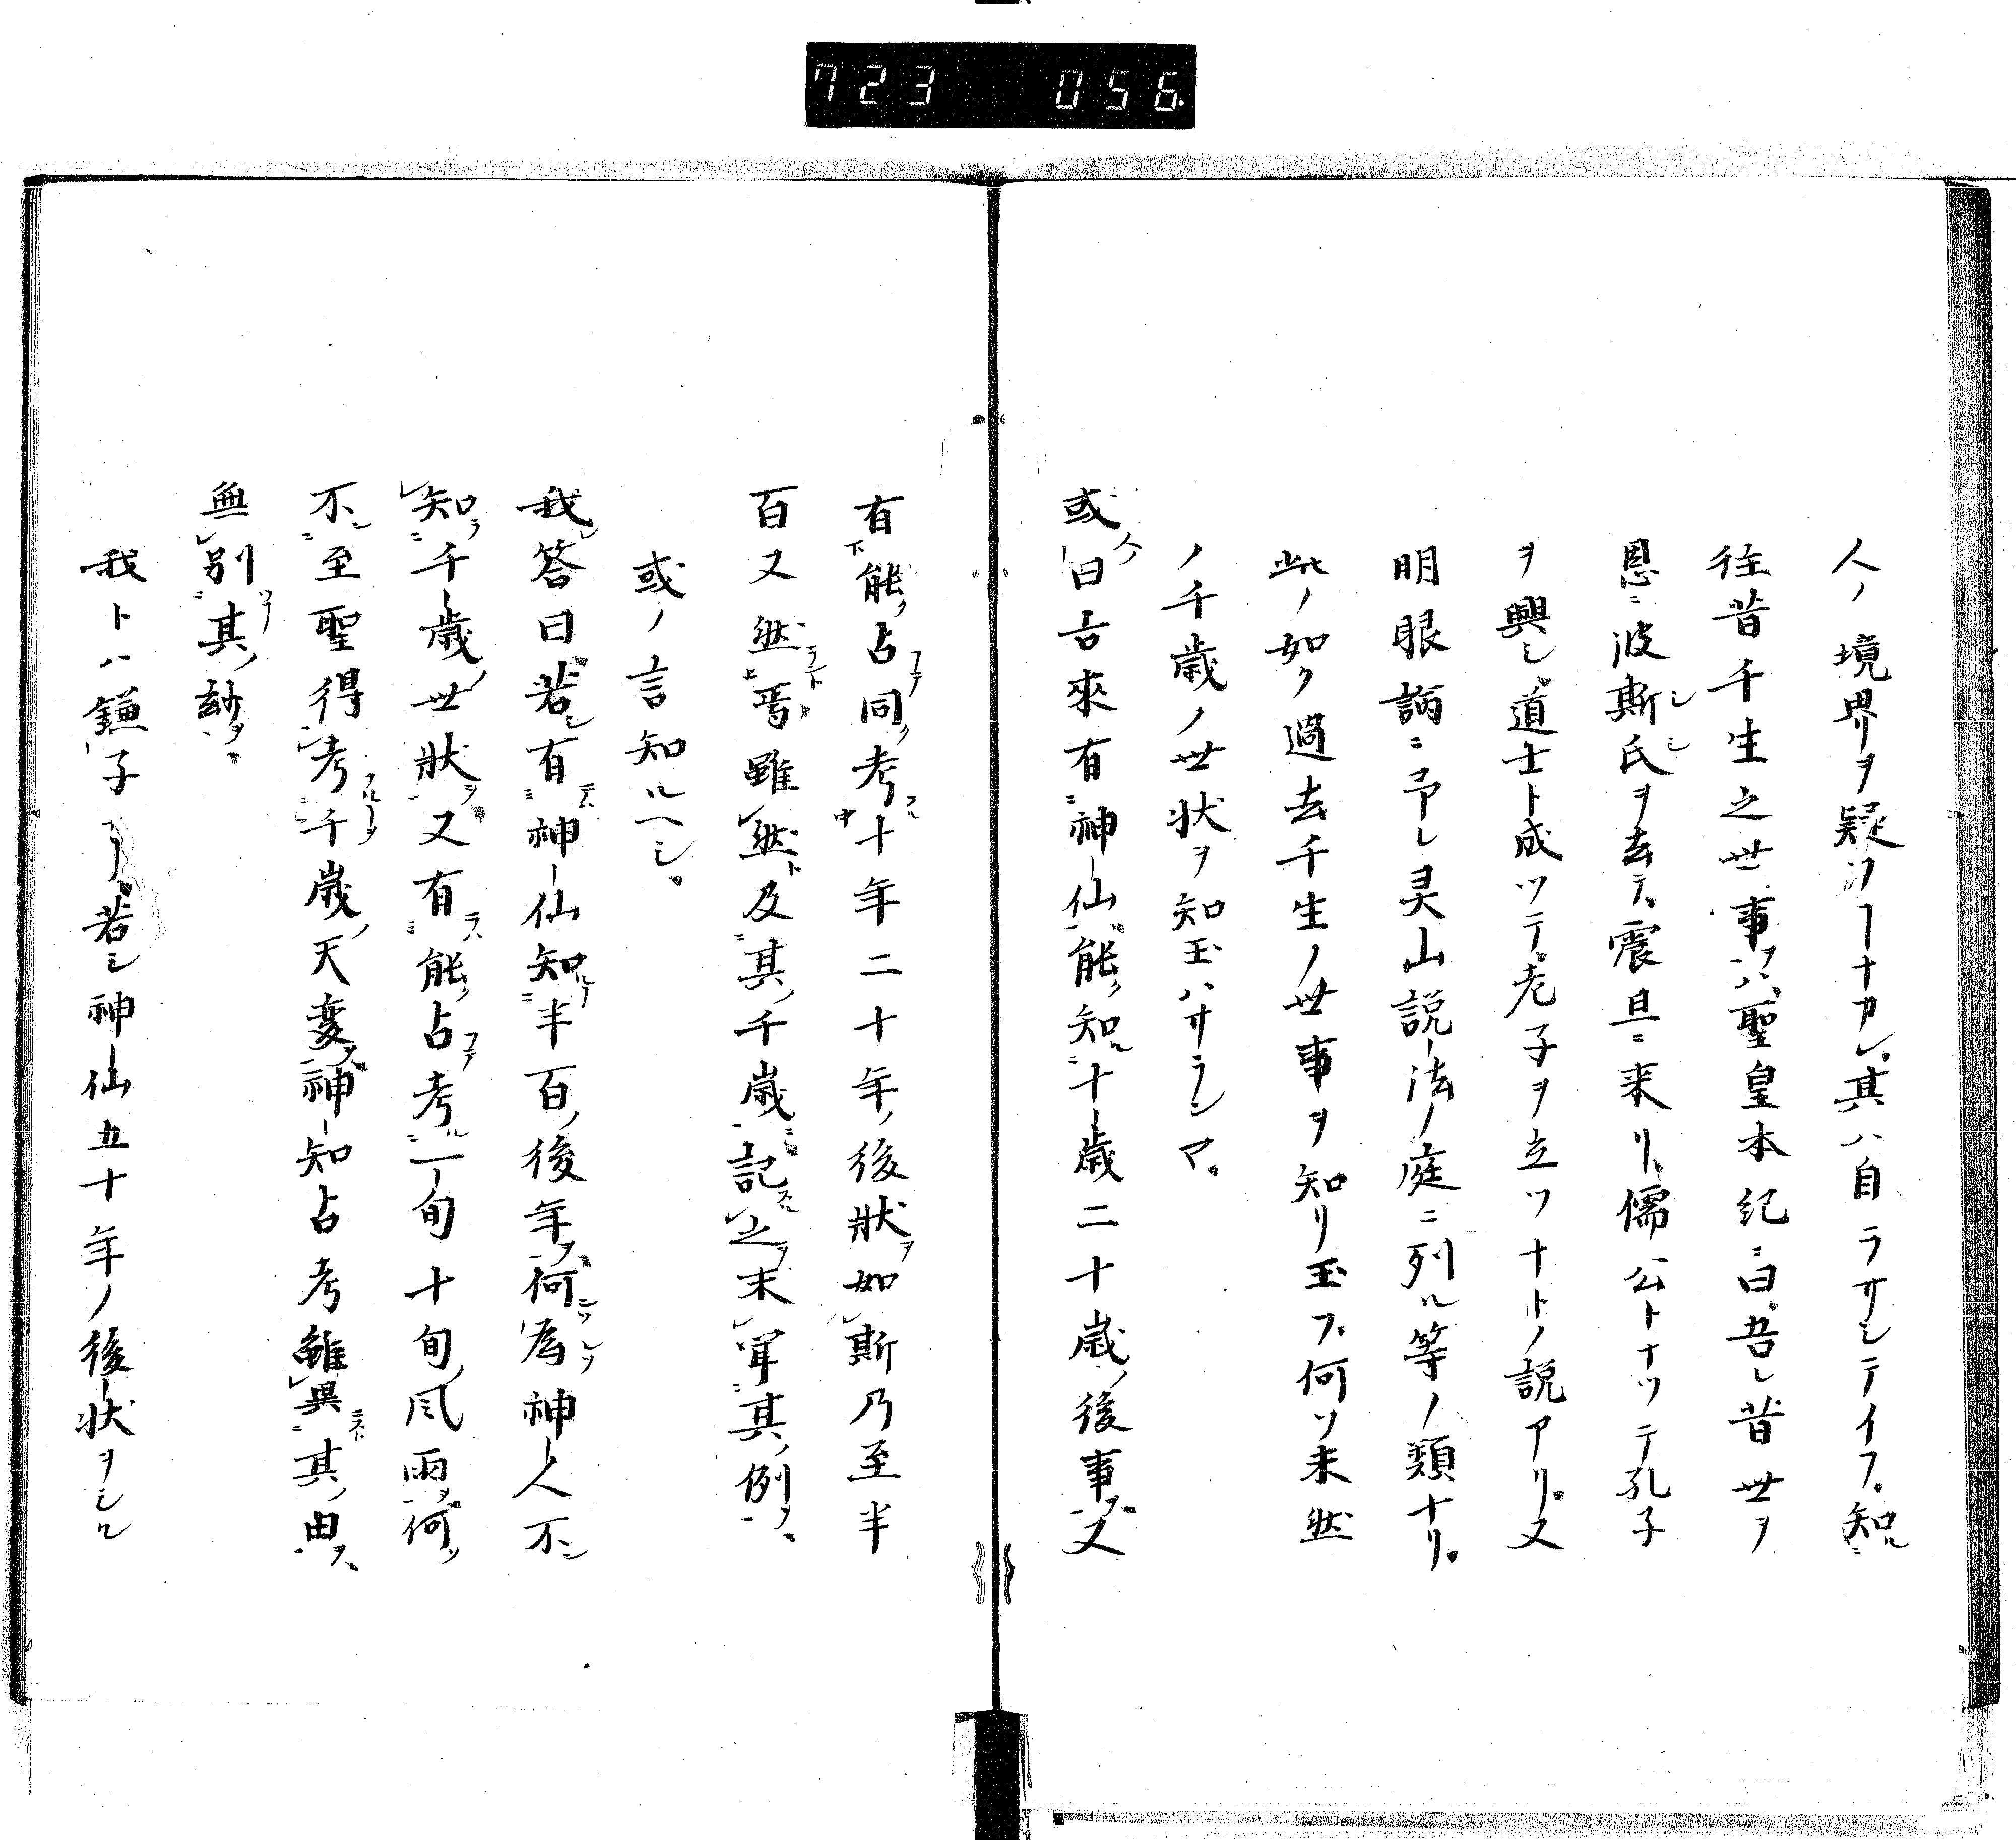 723 056
人ノ境界ヲ疑フヿナカレ其ハ自ラサシテイフ知ル
往昔千生之世事ヲハ聖皇本紀ニ曰吾レ昔世ヲ
恩ニ波斯氏ヲ去テ震旦ニ来リ儒公トナツテ孔子
ヲ興シ道士ト成ツテ老子ヲ立ツナトノ説アリ又
明眼論ニ予レ灵山説法ノ庭ニ列ル等ノ類ナリ
此ノ如ク過去千生ノ世事ヲ知リ玉フ何ソ未然
ノ千歳ノ世状ヲ知玉ハサラシマ
或人曰古來有神仙能知十歳二十歳後事又
有能占同考十年二十年後狀如斯乃至半
百又然焉雖然及其千歳記之末軍其例
或ノ言知ルヘシ
我答曰若有神仙知半百後年何為神人不
知千歳世狀又有能占考一旬十旬風雨何
不至聖得考千歳天変神知占考雖異其由
無別其紗
我トハ鎌子ナリ若シ神仙五十年ノ後状ヲシル